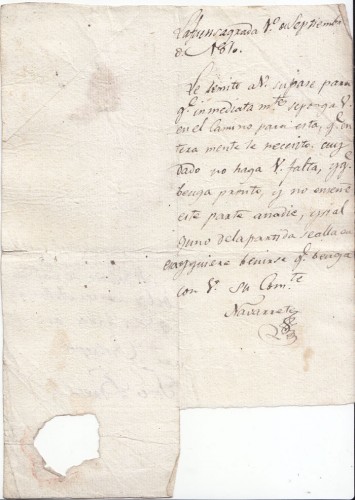 Lafuensagrada 1.º de Septiembre
de 1810.
Le remito a V. su pase para
q.e inmediata m.te se ponga V.
en el camino para esta, q.e en
tera mente le necesito, cuy
dado no haga V. falta, y q.e
benga pronto, y no enseñe
este parte anadie, y si al
guno dela partida se alla en
ay quiere benirse q.e benga
con V. su Com.te
Navarrete